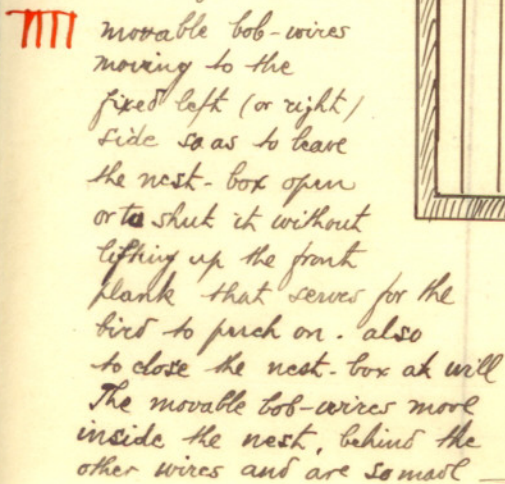 movable bob-wires
moving to the
fixed left (or right)
side so as to leave
the nest-box open
or to shut it without
lifting up the front
plank that serves for the
bird to perch on. also
to close the nest-box at will
The movable bob-wires move
inside the nest, behind the
other wires and are so made —